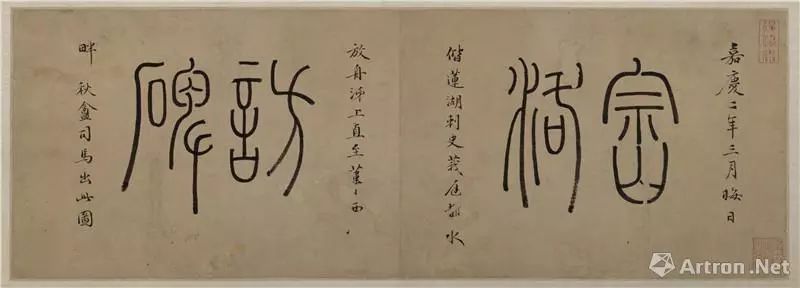 嘉慶二年三月晦日
崈
洛
偕蓮湖刺史莪庭都水
放舟泲上直至西
訪
碑
畔 秋盦司馬出此圖
Artron.Net